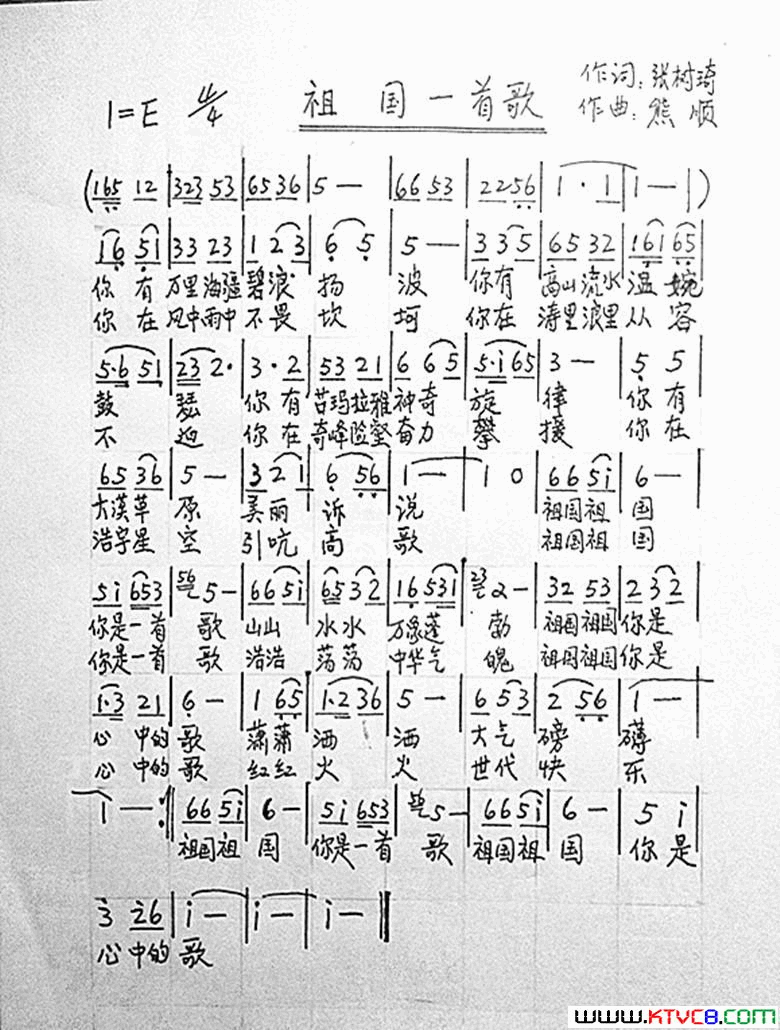 祖国一首歌
作词:张树琦
1=E 4/4
作曲:熊顺
(165 12|323 53|65 36|5 —|66 53|22 56|1 · 1|1 —|)
16 51|33 23|1 23|6 5|5 —|3 35|65 32|161 65|
你 有 万里海疆 碧浪 扬 波 你有 高山流水 温 婉
你 在 风中雨中 不畏 坎 坷 你在 涛里浪里 从 容
5·6 51|23 2·|3 · 2|53 21|6 65|5·i 65|3 —|5 5|
鼓 瑟 你 有 苫玛拉雅 神奇 旋 律 你 有
不 迫 你 在 奇峰险壑 奋力 攀 援 你 在
65 36|5 —|3 21|6 56|1 —|1 0|66 5i|6 —|
大漠草 原 美丽 诉 说 祖国祖 国
浩宇星 空 引吭 高 歌 祖国祖 国
5i 653|56 5—|66 5i|65 32|16 531|23 2—|32 53|2 32|
你是一首 歌 山山 水水 万象蓬 勃 祖国祖国 你是
你是一首 歌 浩浩 荡荡 中华气 魄 祖国祖国 你是
1·3 21|6 —|1 65|1·2 36|5 —|6 53|2 56|1 —|
心 中的 歌 潇潇 洒 洒 大气 磅 礴
心 中的 歌 红红 火 火 世代 快 乐
1 —:||66 5i|6 —|5i 653|5—|66 5i|6 —|5 i|
祖国祖 国 你是一首 歌 祖国祖 国 你 是
3 26|i —|i —|i —||
心 中的 歌
www.KTVC8.com